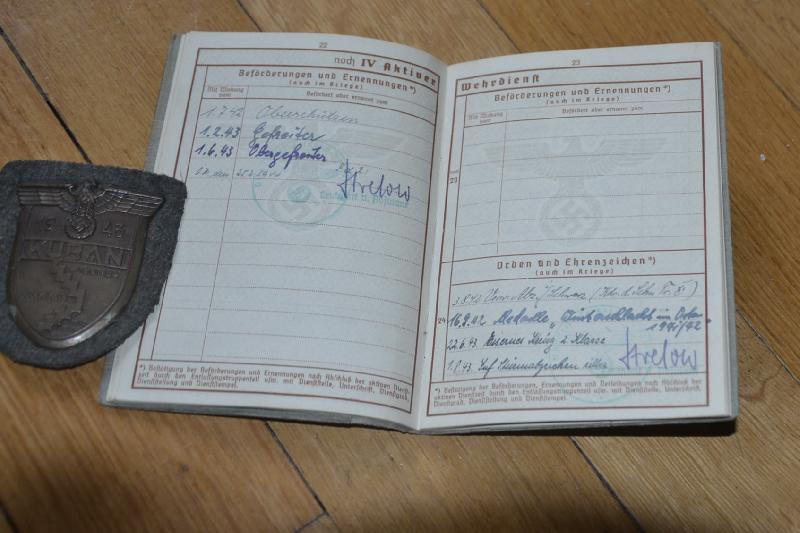 22
noch IV Aktiver
Beförderungen und Ernennungen*)
(auch im Kriege)
Mit Wirkung vom
Befördert oder ernannt zum
1.7.42 Oberschützen
1.2.43 Gefreiter
1.6.43 Obergefreiter
Strelow
*) Bestätigung der Beförderungen und Ernennungen nach Abschluß der aktiven Dienst-
zeit durch den Entlassungstruppenteil usw. mit Dienststelle, Unterschrift, Dienstgrad,
Dienststellung und Dienststempel.
23
Wehrdienst
Beförderungen und Ernennungen*)
(auch im Kriege)
Mit Wirkung vom
Befördert oder ernannt zum
23
Orden und Ehrenzeichen*)
(auch im Kriege)
3.8.42 Verw. Abz. i/Schwarz
24
16.9.42 Medaille "Winterschlacht im Osten
1941/42"
22.6.43 Eisernes Kreuz 2. Klasse
1.8.43 Inf. Sturmabzeichen silber
Strelow
*) Bestätigung der Beförderungen, Ernennungen und Verleihungen nach Abschluß der
aktiven Dienstzeit durch den Entlassungstruppenteil usw. mit Dienststelle, Unterschrift,
Dienstgrad, Dienststellung und Dienststempel.
1943
KUBAN